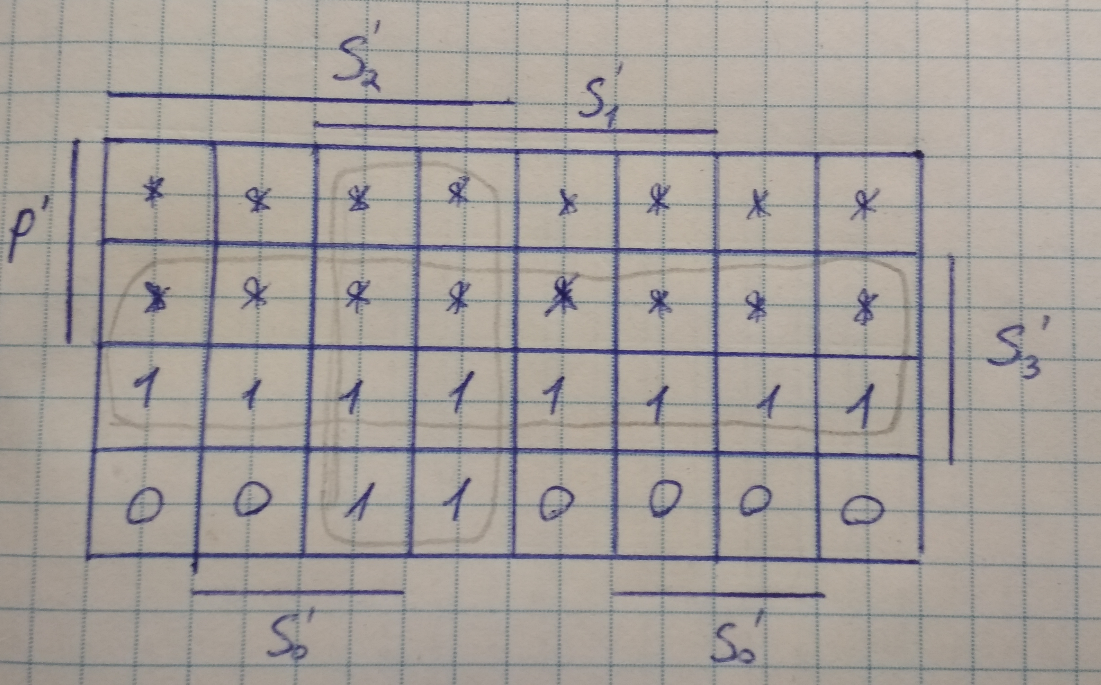 S₂'
S₁'
P'
* * * * * * * *
* * * * * * * *
S₃'
1 1 1 1 1 1 1 1
0 0 1 1 0 0 0 0
S₀' S₀'